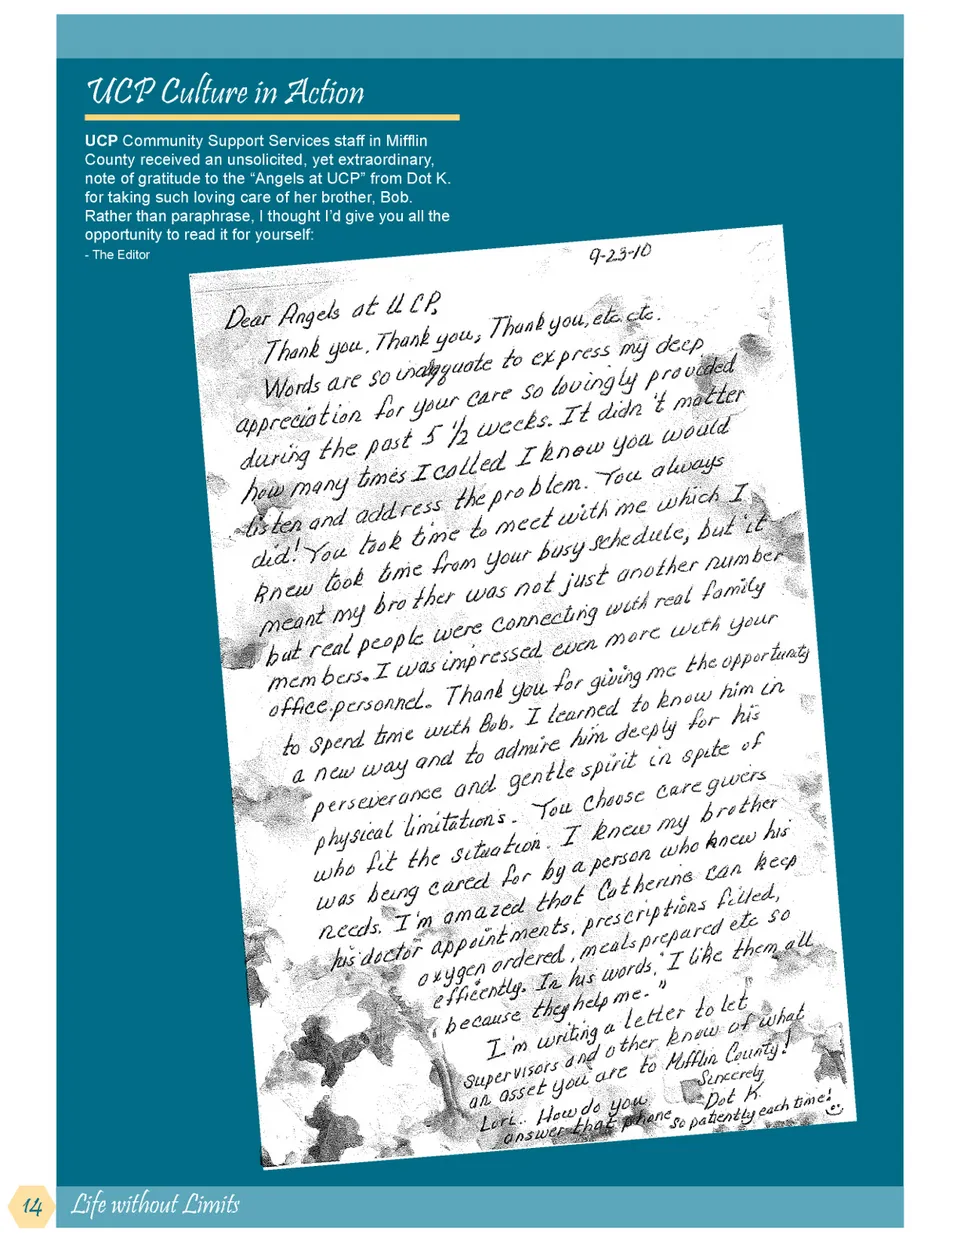 UCP Culture in Action
UCP Community Support Services staff in Mifflin
County received an unsolicited, yet extraordinary,
note of gratitude to the “Angels at UCP” from Dot K.
for taking such loving care of her brother, Bob.
Rather than paraphrase, I thought I’d give you all the
opportunity to read it for yourself:
- The Editor
9-23-10
Dear Angels at UCP,
Thank you. Thank you, Thank you, etc etc.
Words are so inadqquate to express my deep
appreciation for your care so lovingly provided
during the past 5 1/2 weeks. It didn't matter
how many times I called I know you would
listen and address the problem. You always
did! You took time to meet with me which I
knew took time from your busy schedule, but it
meant my brother was not just another number
but real people were connecting with real family
members. I was impressed even more with your
office personnel. Thank you for giving me the opportunity
to spend time with Bob. I learned to know him in
a new way and to admire him deeply for his
perseverance and gentle spirit in spite of
physical limitations. You choose care givers
who fit the situation. I knew my brother
was being cared for by a person who knew his
needs. I'm amazed that Catherine can keep
his doctor appointments, prescriptions filled,
oxygen ordered, meals prepared etc so
efficently. In his words, "I like them all
because they help me."
I'm writing a letter to let
supervisors and other know of what
an asset you are to Mifflin County!
Sincerely
Dot K.
Lori.. How do you
answer that phone so patiently each time!
14
Life without Limits